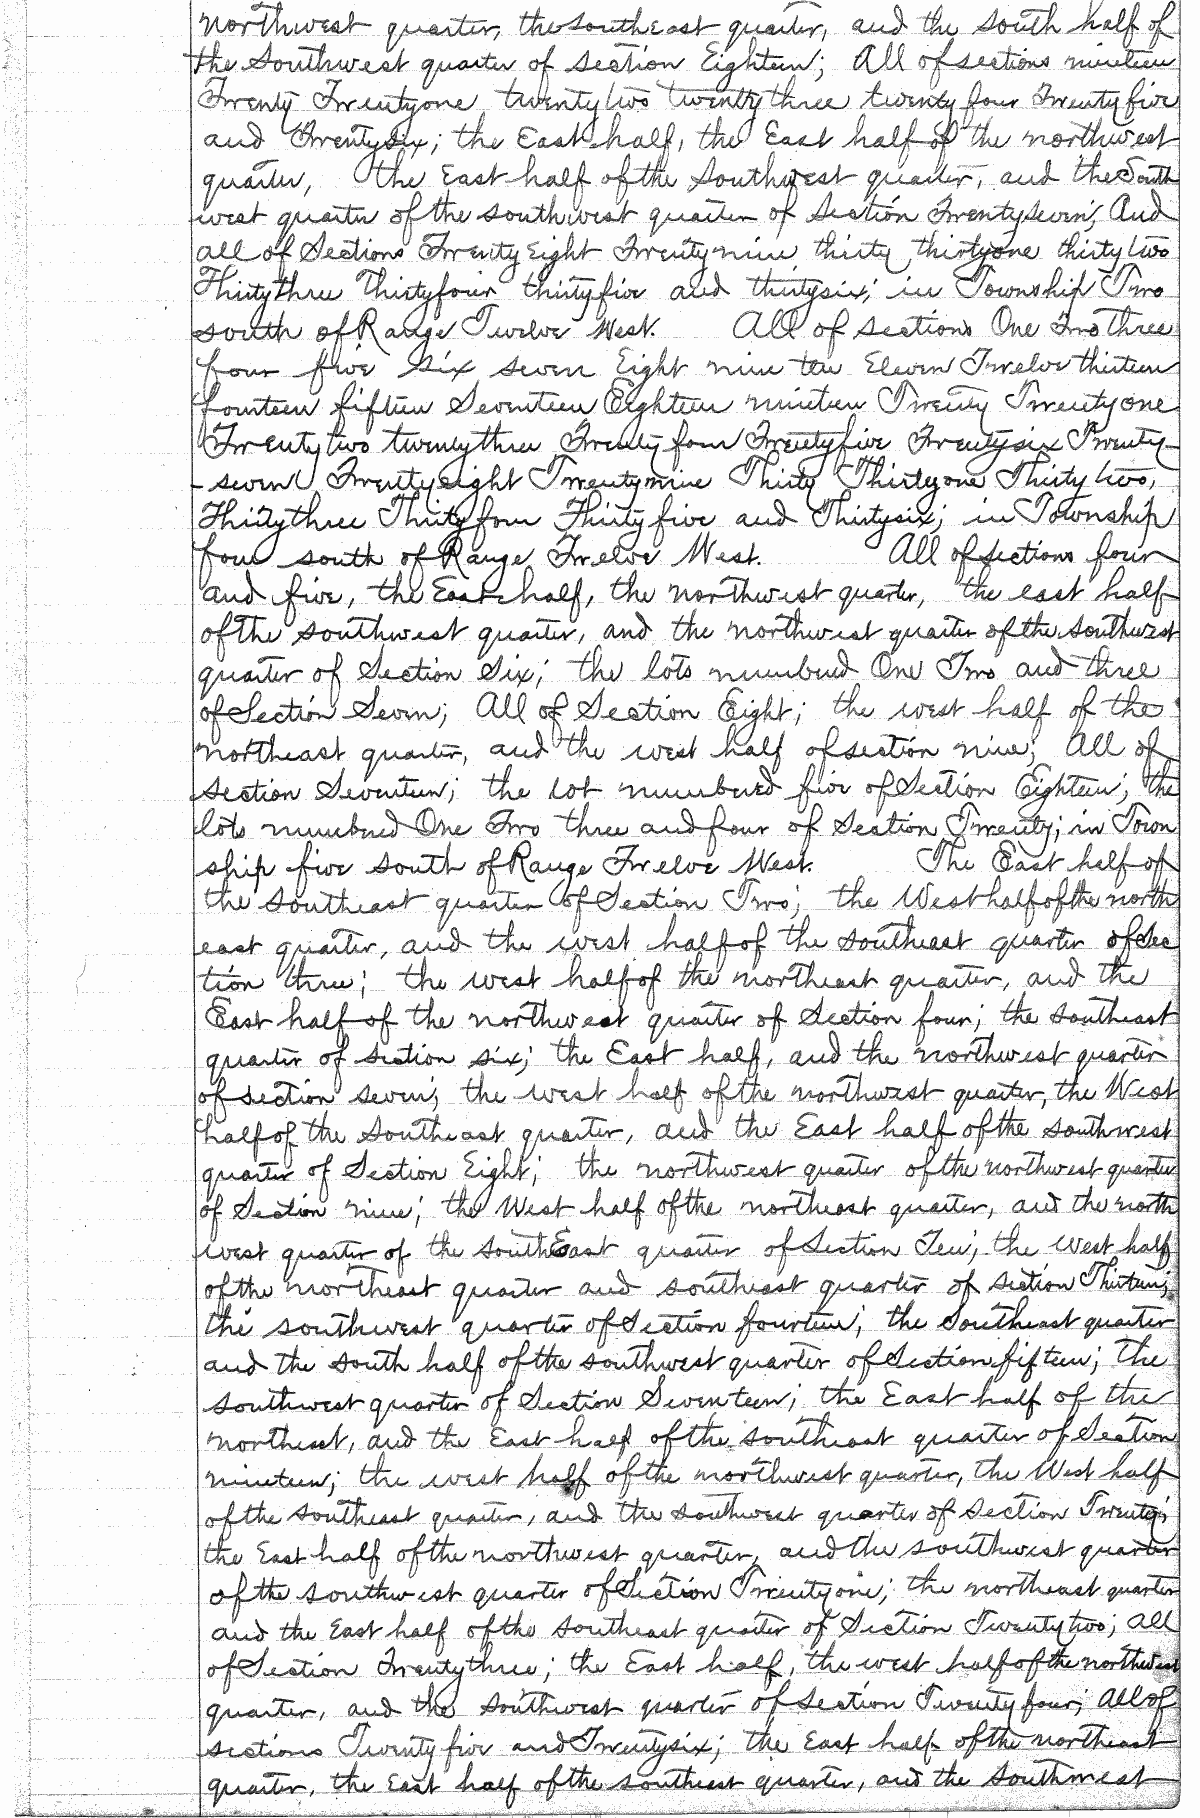 northwest quarter, the southeast quarter, and the south half of
the Southwest quarter of section Eighteen; All of sections nineteen
Twenty Twentyone twentytwo twentythree twentyfour Twentyfive
and Twentysix; the East half, the East half of the northwest
quarter, the East half of the Southwest quarter, and the South
west quarter of the southwest quarter of Section Twentyseven; And
all of Sections Twentyeight Twentynine thirty thirtyone thirtytwo
Thirtythree Thirtyfour thirtyfive and thirtysix; in Township Two
south of Range Twelve West. All of sections One Two three
four five six seven Eight nine ten Eleven Twelve thirteen
fourteen fifteen Seventeen Eighteen nineteen Twenty Twentyone
Twentytwo twentythree Twentyfour Twentyfive Twentysix Twenty-
-seven Twentyeight Twentynine Thirty Thirtyone Thirtytwo,
Thirtythree Thirtyfour Thirtyfive and Thirtysix; in Township
four south of Range Twelve West. All of sections four
and five, the East half, the northwest quarter, the east half
of the southwest quarter, and the northwest quarter of the southwest
quarter of Section Six; the lots numbered One Two and three
of Section Seven; All of Section Eight; the west half of the
northeast quarter, and the west half of section nine; All of
section Seventeen; the lot numbered five of Section Eighteen; the
lots numbered One Two three and four of Section Twenty; in Town
ship five south of Range Twelve West. The East half of
the southeast quarter of Section Two; the West half of the north
east quarter, and the west half of the southeast quarter of Sec
tion three; the west half of the northeast quarter, and the
East half of the northwest quarter of Section four; the southeast
quarter of section six; the East half, and the northwest quarter
of section seven; the west half of the northwest quarter, the West
half of the Southeast quarter, and the East half of the southwest
quarter of Section Eight; the northwest quarter of the northwest quarter
of Section nine; the West half of the northeast quarter, and the north
west quarter of the southEast quarter of Section Ten; the west half
of the northeast quarter and southeast quarter of section Thirteen;
the southwest quarter of Section fourteen; the Southeast quarter
and the south half of the southwest quarter of Section fifteen; the
southwest quarter of Section Seventeen; the East half of the
northeast, and the East half of the southeast quarter of Section
nineteen; the west half of the northwest quarter, the West half
of the southeast quarter, and the southwest quarter of Section Twenty;
the East half of the northwest quarter, and the southwest quarter
of the southwest quarter of Section Twentyone; the northeast quarter
and the East half of the southeast quarter of Section Twentytwo; All
of Section Twentythree; the East half, the west half of the northwest
quarter, and the southwest quarter of Section Twentyfour; All of
sections Twentyfive and Twentysix; the East half of the northeast
quarter, the East half of the southeast quarter, and the southwest